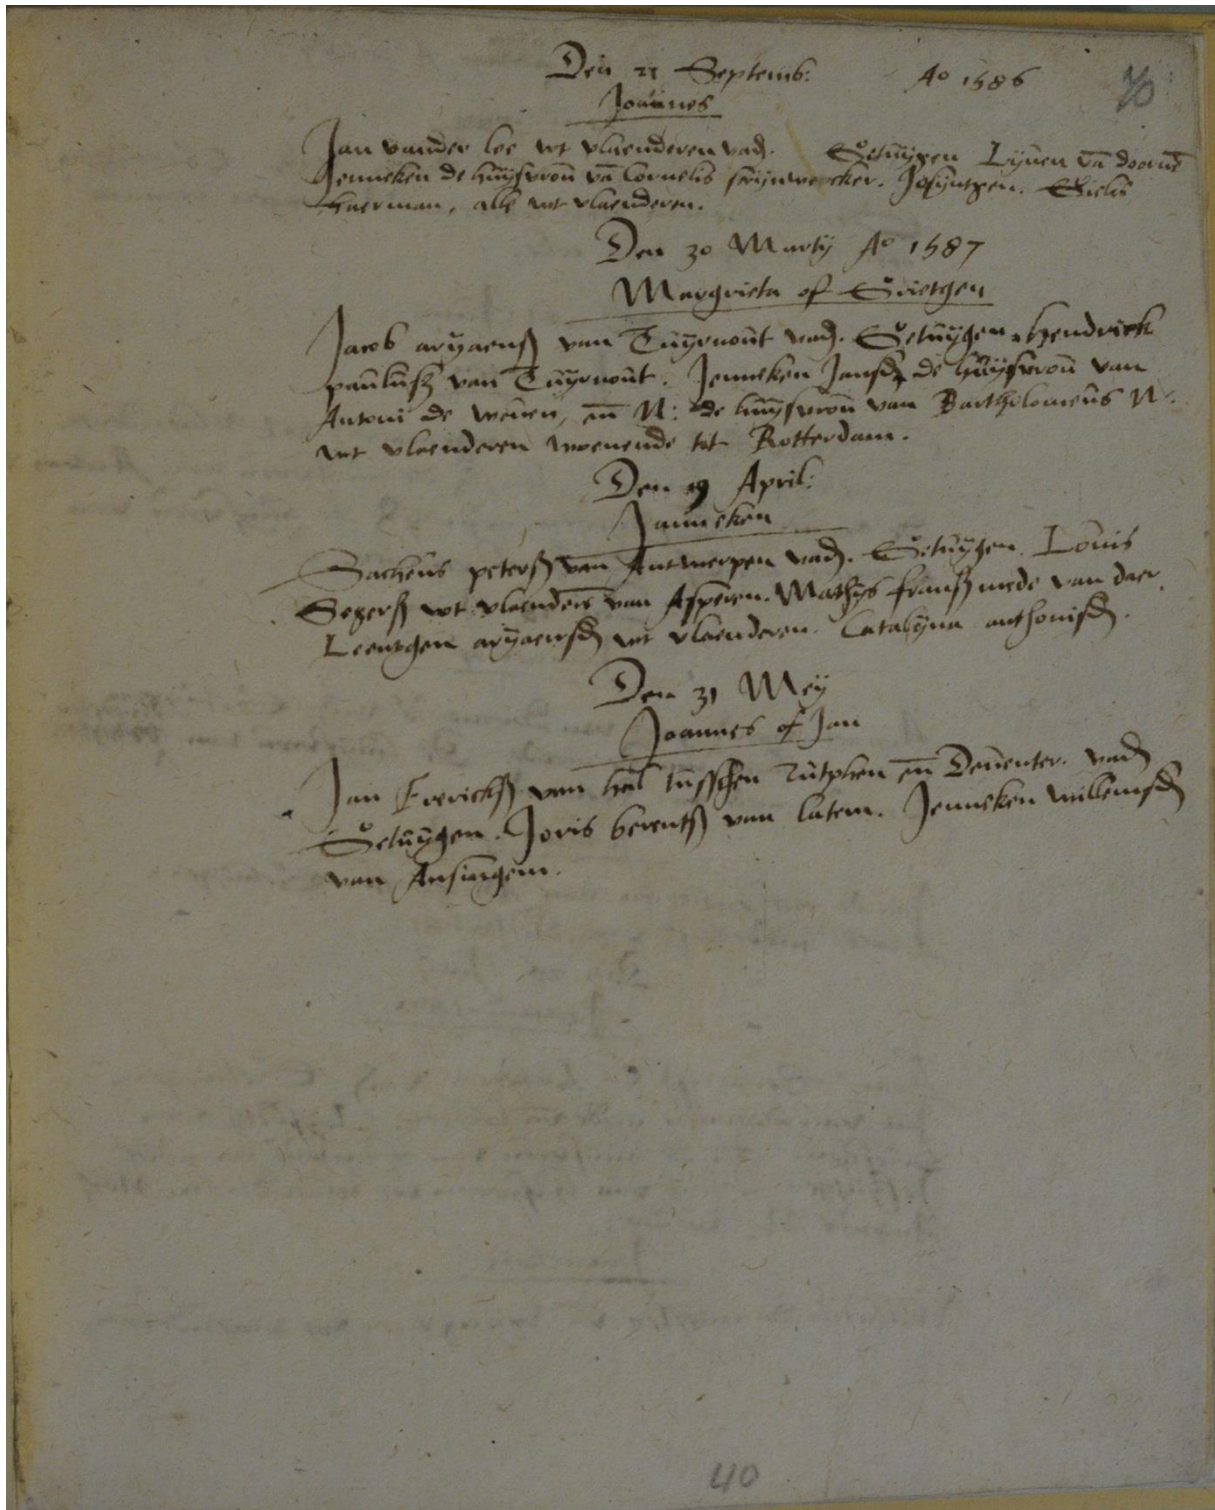 Den 21 Septemb: Ao 1586
40
Joannes
Jan vander loe wt vlaenderen vad. Getuÿgen Lÿnen va doorne
Jenneken de huÿsvrou va Cornelis scrijnwercker. Josÿntgen. Gielis
haerman, alle wt vlaenderen.
Den 30 Martÿ Ao 1587
Margrieta of Grietgen
Jacob arÿaensz van Tuÿrnout vad. Getuÿgen Hendrick
paulusz van Tuÿrnout. Jenneken Jansd de huÿsvrou van
Antoni de weuer, en N: de huÿsvrou van Bartholomeus N.
wt vlaenderen woenende tot Rotterdam.
Den 19 April:
Janneken
Sacheus petersz van Antwerpen vad. Getuÿgen. Louis
Segersz wt vlaendere van Asperen. Mathÿs fransz mede van daer.
Leentgen arÿaensd wt vlaenderen. Catalÿna anthonisd.
Den 31 Meÿ
Joannes of Jan
Jan Frericksz van tusschen Zutphen en Deuenter. vad
Getuÿgen. Joris berentsz van latem. Jenneken willemsd
van Ansingem.
40